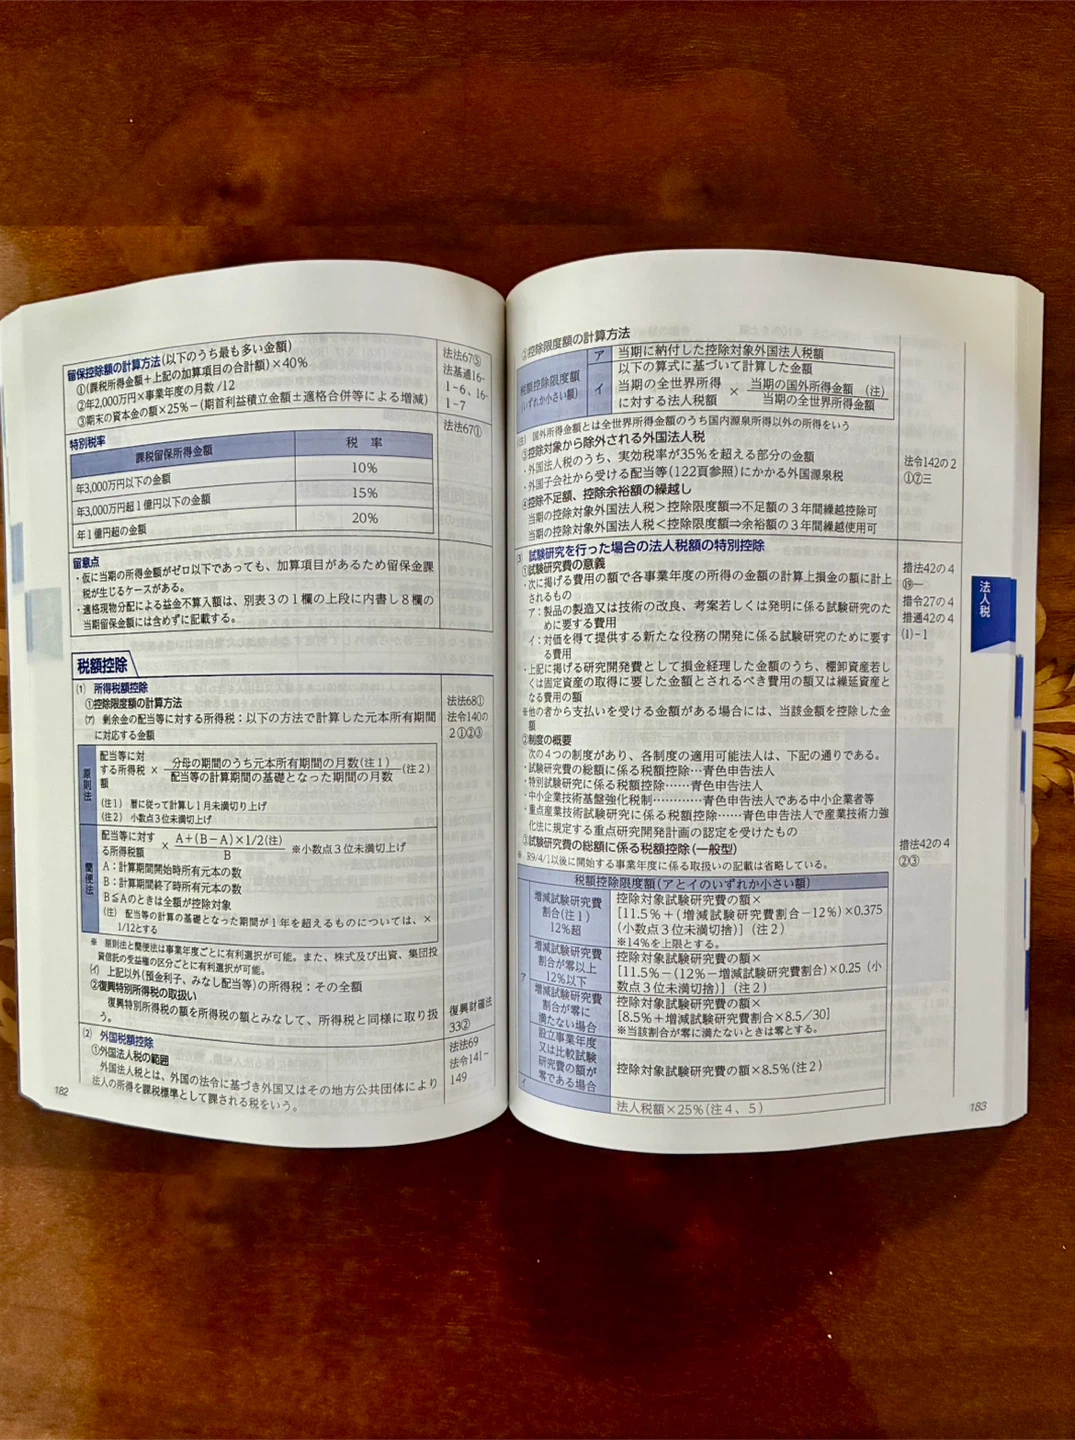 留保控除額の計算方法(以下のうち最も多い金額)
①(課税所得金額+上記の加算項目の合計額)×40%
②年2,000万円×事業年度の月数/12
③期末の資本金の額×25%-(期首利益積立金額±適格合併等による増減)
法法67⑤
法基通16-
1-6、16-
1-7
特別税率
法法67①
課税留保所得金額 税 率
年3,000万円以下の金額 10%
年3,000万円超1億円以下の金額 15%
年1億円超の金額 20%
留意点
・仮に当期の所得金額がゼロ以下であっても、加算項目があるため留保金課
税が生じるケースがある。
・適格現物分配による益金不算入額は、別表3の1欄の上段に内書し8欄の
当期留保金額には含めずに記載する。
税額控除
⑴ 所得税額控除
①控除限度額の計算方法
㋐ 剰余金の配当等に対する所得税:以下の方法で計算した元本所有期間
に対応する金額
法法68①
法令140の
2①②③
原則法
配当等に対
する所得税
額
× 分母の期間のうち元本所有期間の月数(注1)
配当等の計算期間の基礎となった期間の月数
(注2)
(注1) 暦に従って計算し1月未満切り上げ
(注2) 小数点3位未満切上げ
簡便法
配当等に対す
る所得税額
× A+(B-A)×1/2(注)
B
※小数点3位未満切上げ
A:計算期間開始時所有元本の数
B:計算期間終了時所有元本の数
B≦Aのときは全額が控除対象
(注) 配当等の計算の基礎となった期間が1年を超えるものについては、×
1/12とする
※ 原則法と簡便法は事業年度ごとに有利選択が可能。また、株式及び出資、集団投
資信託の受益権の区分ごとに有利選択が可能。
㋑ 上記以外(預金利子、みなし配当等)の所得税:その全額
②復興特別所得税の取扱い
復興特別所得税の額を所得税の額とみなして、所得税と同様に取り扱
う。
復興財確法
33②
⑵ 外国税額控除
①外国法人税の範囲
外国法人税とは、外国の法令に基づき外国又はその地方公共団体により
法人の所得を課税標準として課される税をいう。
法法69
法令141~
149
182
②控除限度額の計算方法
税額控除限度額
(いずれか小さい額)
ア 当期に納付した控除対象外国法人税額
イ 以下の算式に基づいて計算した金額
当期の全世界所得
に対する法人税額
× 当期の国外所得金額 (注)
当期の全世界所得金額
(注) 国外所得金額とは全世界所得金額のうち国内源泉所得以外の所得をいう
③控除対象から除外される外国法人税
・外国法人税のうち、実効税率が35%を超える部分の金額
・外国子会社から受ける配当等(122頁参照)にかかる外国源泉税
法令142の2
①⑦三
④控除不足額、控除余裕額の繰越し
当期の控除対象外国法人税>控除限度額⇒不足額の3年間繰越控除可
当期の控除対象外国法人税<控除限度額⇒余裕額の3年間繰越使用可
⑶ 試験研究を行った場合の法人税額の特別控除
①試験研究費の意義
・次に掲げる費用の額で各事業年度の所得の金額の計算上損金の額に計上
されるもの
ア:製品の製造又は技術の改良、考案若しくは発明に係る試験研究のた
めに要する費用
イ:対価を得て提供する新たな役務の開発に係る試験研究のために要す
る費用
措法42の4
⑲一
措令27の4
措通42の4
(1)-1
・上記に掲げる研究開発費として損金経理した金額のうち、棚卸資産若し
くは固定資産の取得に要した金額とされるべき費用の額又は繰延資産と
なる費用の額
※他の者から支払いを受ける金額がある場合には、当該金額を控除した金
額
②制度の概要
次の4つの制度があり、各制度の適用可能法人は、下記の通りである。
・試験研究費の総額に係る税額控除…青色申告法人
・特別試験研究に係る税額控除……青色申告法人
・中小企業技術基盤強化税制…………青色申告法人である中小企業者等
・重点産業技術試験研究に係る税額控除……青色申告法人で産業技術力強
化法に規定する重点研究開発計画の認定を受けたもの
③試験研究費の総額に係る税額控除(一般型)
※ R9/4/1以後に開始する事業年度に係る取扱いの記載は省略している。
措法42の4
②③
税額控除限度額(アとイのいずれか小さい額)
ア
増減試験研究費
割合(注1)
12%超
控除対象試験研究費の額×
[11.5%+(増減試験研究費割合-12%)×0.375
(小数点3位未満切捨)](注2)
※14%を上限とする。
増減試験研究費
割合が零以上
12%以下
控除対象試験研究費の額×
[11.5%-(12%-増減試験研究費割合)×0.25(小
数点3位未満切捨)](注2)
増減試験研究費
割合が零に
満たない場合
控除対象試験研究費の額×
[8.5%+増減試験研究費割合×8.5/30]
※当該割合が零に満たないときは零とする。
設立事業年度
又は比較試験
研究費の額が
零である場合
控除対象試験研究費の額×8.5%(注2)
イ
法人税額×25%(注4、5)
法人税
183